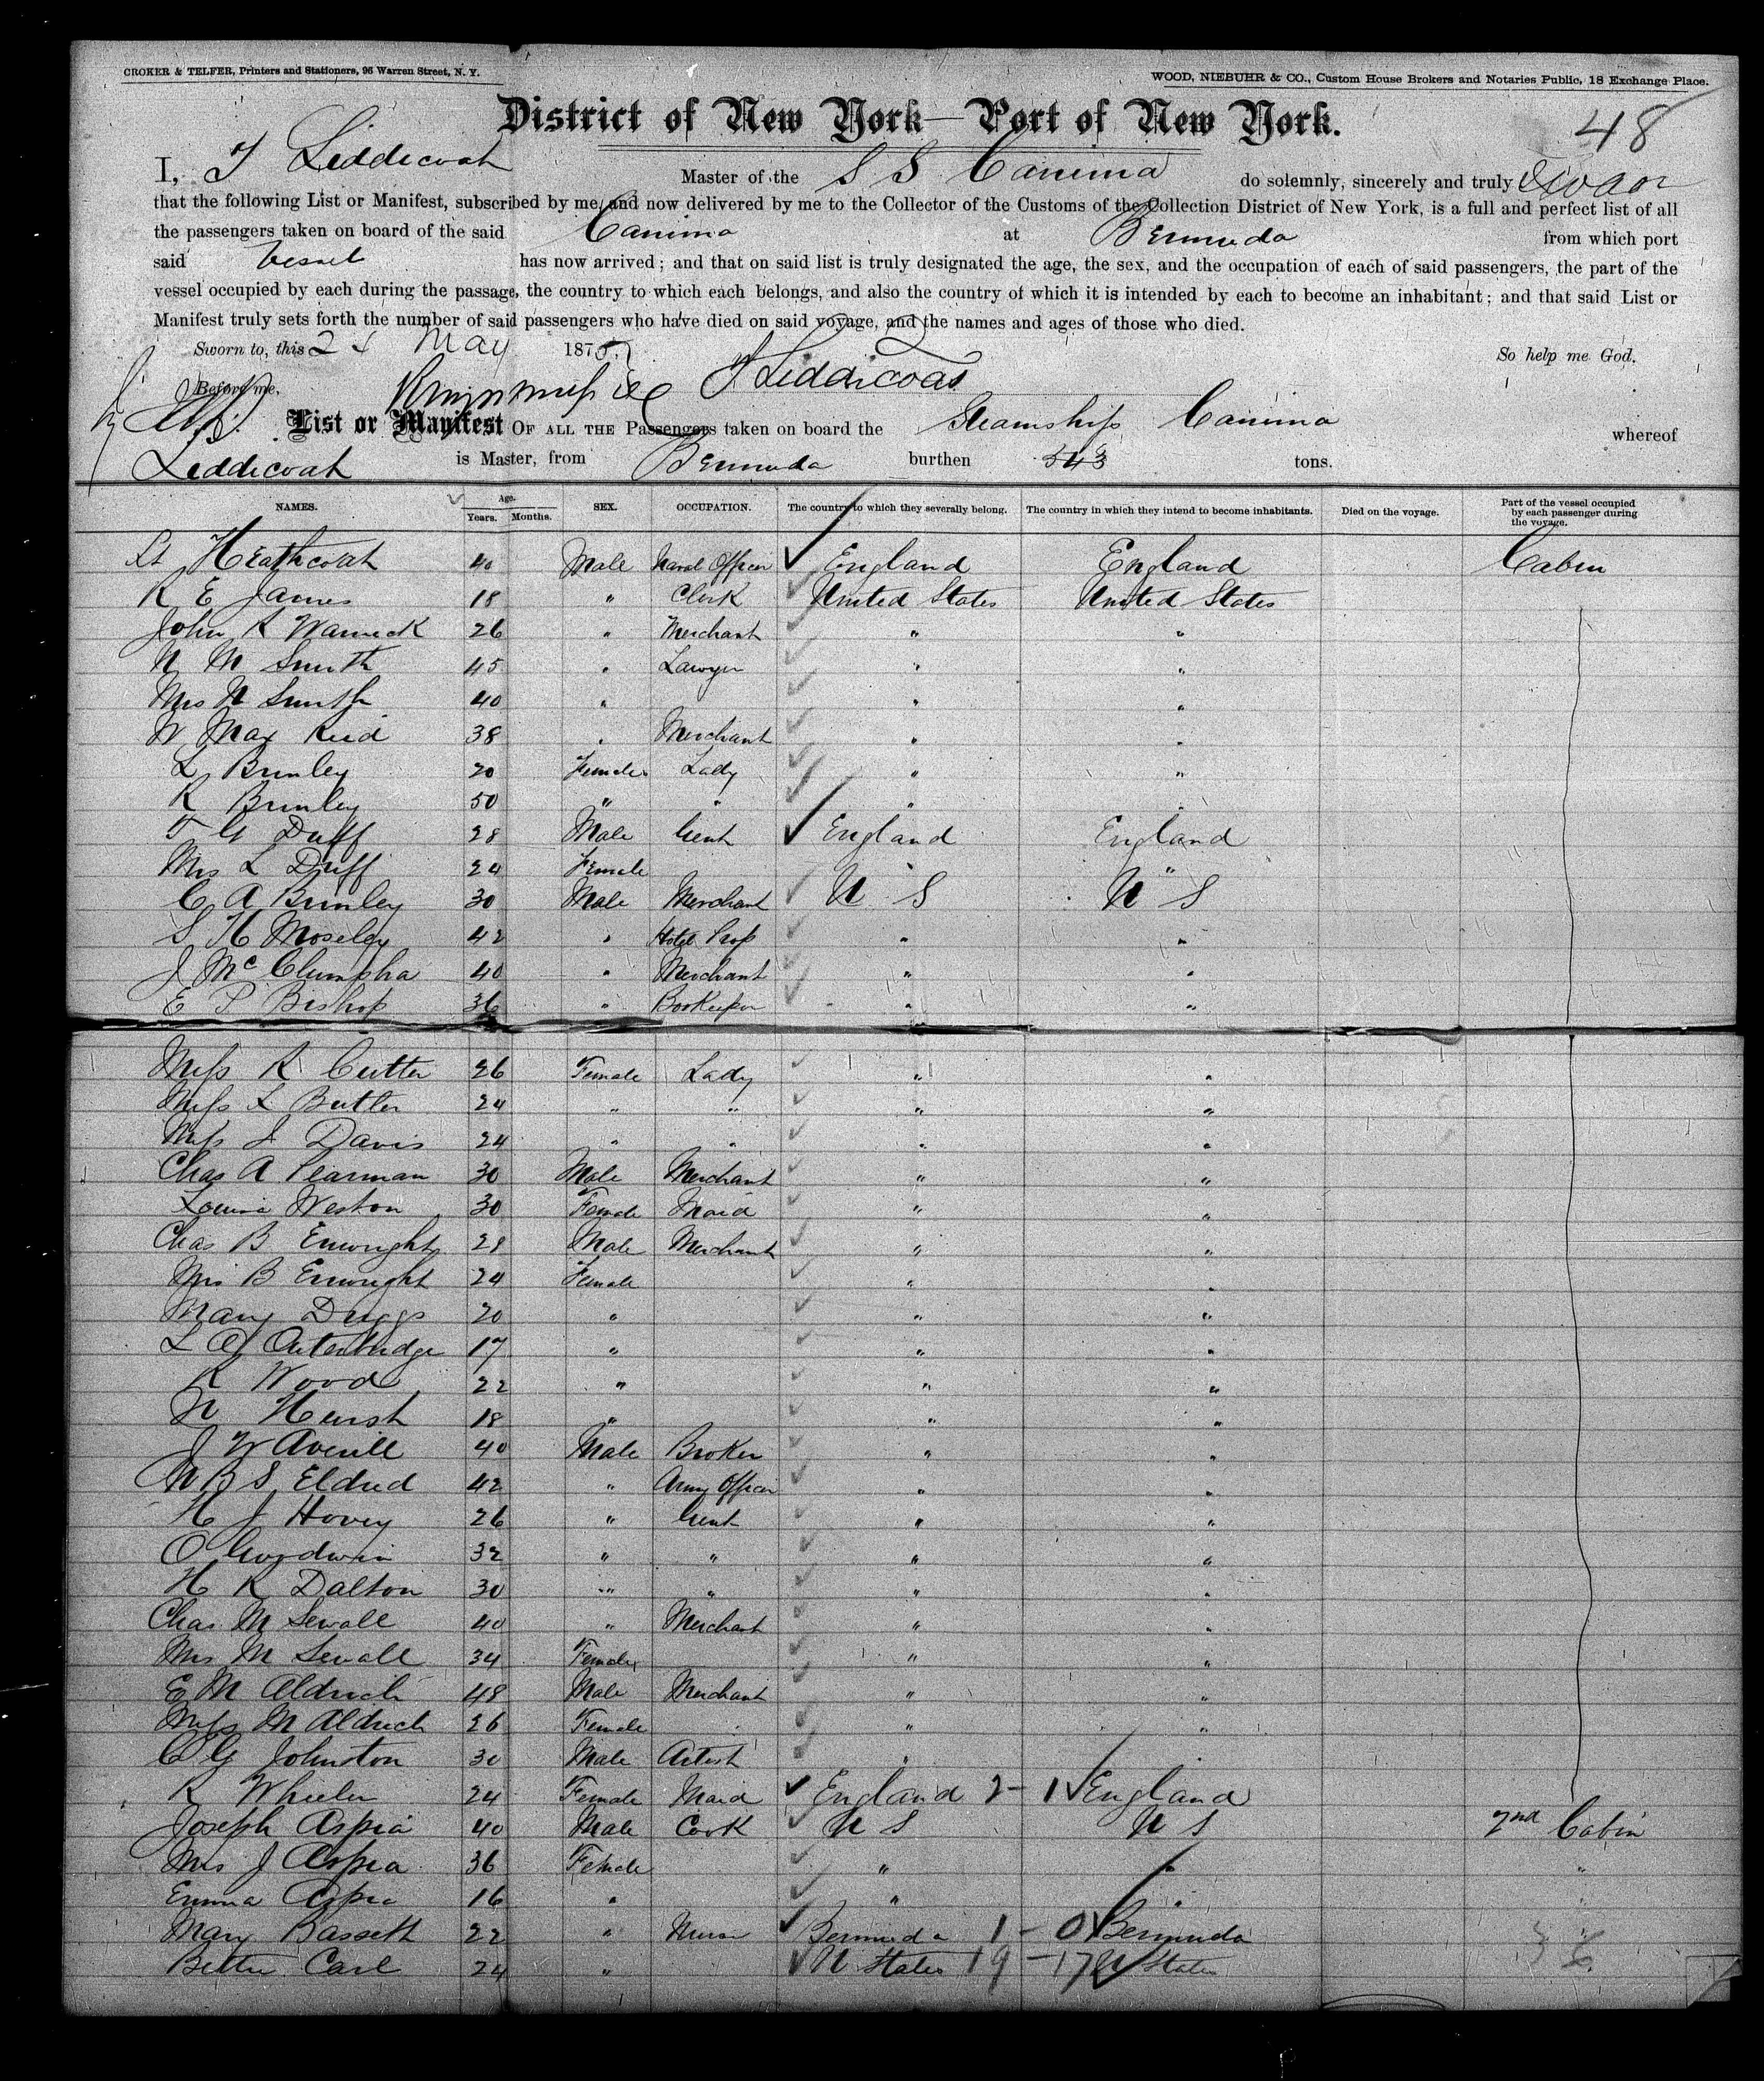 CROKER & TELFER, Printers and Stationers, 96 Warren Street, N. Y.
WOOD, NIEBUHR & CO., Custom House Brokers and Notaries Public, 18 Exchange Place.
District of New York—Port of New York.
48
I, J Liddicoat Master of the S S Canima do solemnly, sincerely and truly swear
that the following List or Manifest, subscribed by me, and now delivered by me to the Collector of the Customs of the Collection District of New York, is a full and perfect list of all
the passengers taken on board of the said Canima at Bermuda from which port
said Vessel has now arrived; and that on said list is truly designated the age, the sex, and the occupation of each of said passengers, the part of the
vessel occupied by each during the passage, the country to which each belongs, and also the country of which it is intended by each to become an inhabitant; and that said List or
Manifest truly sets forth the number of said passengers who have died on said voyage, and the names and ages of those who died.
Sworn to, this May 1875 So help me God.
Before me. J Liddicoat
List or Manifest OF ALL THE Passengers taken on board the Steamship Canima whereof
Liddicoat is Master, from Bermuda burthen 543 tons.
NAMES. Age. Years. Months. SEX. OCCUPATION. The country to which they severally belong. The country in which they intend to become inhabitants. Died on the voyage. Part of the vessel occupied by each passenger during the voyage.
Lt Heathcoat 40 Male Naval Officer England England Cabin
R E James 18 " Clerk United States United States
John R Warnick 26 " Merchant " "
N M Smith 45 " Lawyer " "
Mrs N Smith 40 " " "
W Max Reid 38 " Merchant " "
L Brinley 20 Female Lady " "
R Brinley 50 " " " "
T G Duff 28 Male Gent England England
Mrs L Duff 24 Female " "
C A Brinley 30 Male Merchant U S U S
S H Moseley 42 " Hotel Prop " "
J McClumpha 40 " Merchant " "
E P Bishop 36 " Bookeeper " "
Miss R Cutter 26 Female Lady " "
Miss L Butler 24 " " " "
Miss J Davis 24 " " " "
Chas A Pearman 30 Male Merchant " "
Louisa Weston 30 Female Maid " "
Chas B Enwright 28 Male Merchant " "
Mrs B Enwright 24 Female " "
Mary Driggs 20 " " "
L A Outerbridge 17 " " "
R Wood 22 " " "
N Hersh 18 " " "
J W Averill 40 Male Broker " "
N B S Eldred 42 " Army Officer " "
H J Hovey 26 " Gent " "
O Goodwin 32 " " " "
H R Dalton 30 " " " "
Chas M Sewall 40 " Merchant " "
Mrs M Sewall 34 Female " "
E M Aldrich 48 Male Merchant " "
Miss M Aldrich 26 Female " "
C G Johnston 30 Male Artist " "
R Wheeler 24 Female Maid England 2 - 1 England
Joseph Aspia 40 Male Cook U S U S 2nd Cabin
Mrs J Aspia 36 Female " " "
Emma Aspia 16 " " " "
Mary Bassett 22 " Nurse Bermuda 1 - 0 Bermuda
Bettie Carl 24 " U States 19 - 17 U States